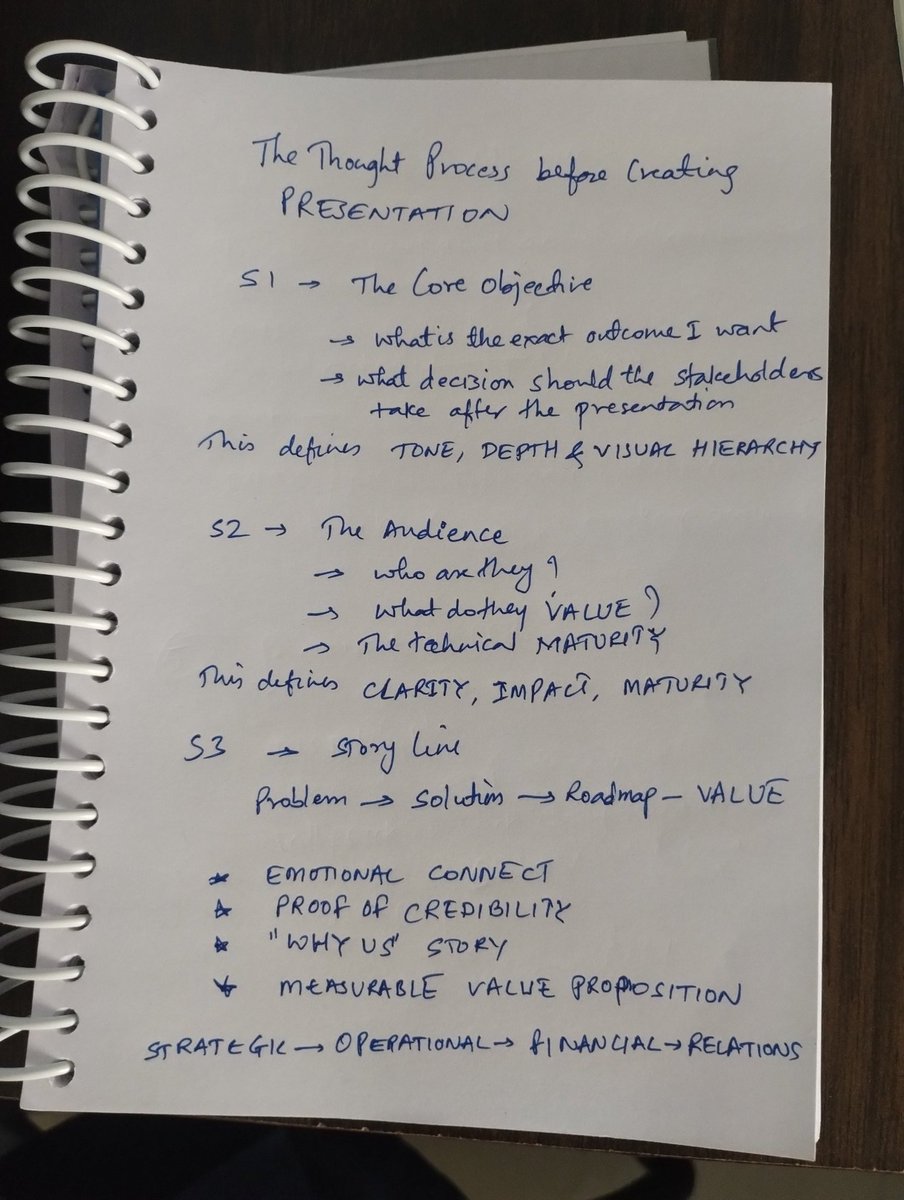 The Thought Process before Creating
PRESENTATION
S1 → The Core Objective
→ what is the exact outcome I want
→ what decision should the stakeholders
take after the presentation
This defines TONE, DEPTH & VISUAL HIERARCHY
S2 → The Audience
→ who are they ?
→ what do they VALUE ?
→ The technical MATURITY
This defines CLARITY, IMPACT, MATURITY
S3 → Story Line
Problem → Solution → Roadmap - VALUE
★ EMOTIONAL CONNECT
★ PROOF OF CREDIBILITY
★ "WHY US" STORY
★ MEASURABLE VALUE PROPOSITION
STRATEGIC → OPERATIONAL → FINANCIAL → RELATIONS